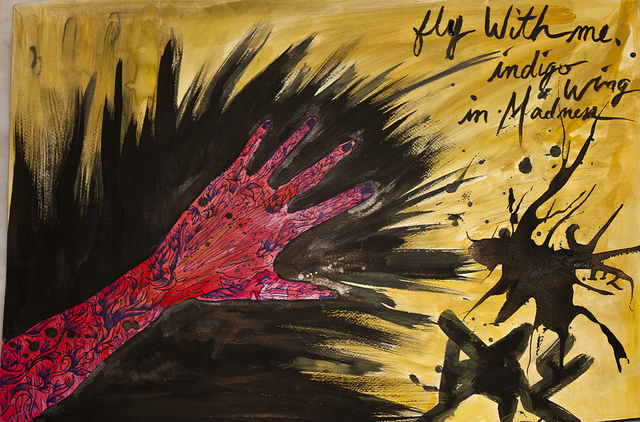 fly With me.
indigo
Wing
in Madness